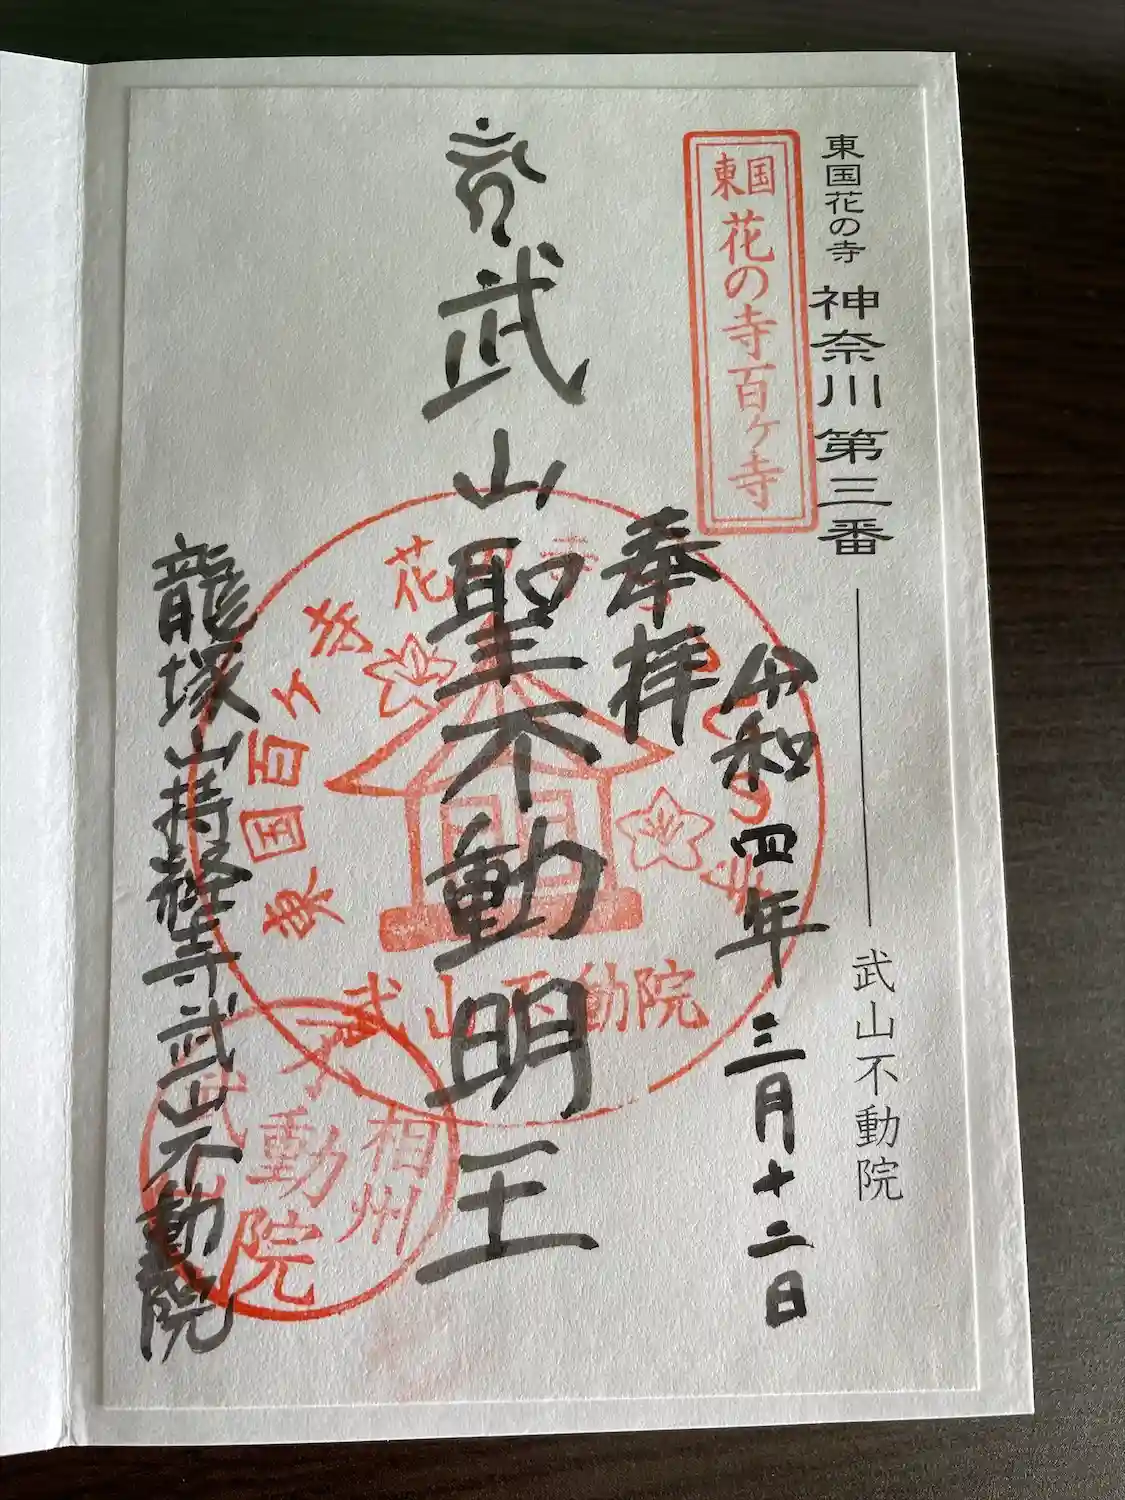 東国花の寺 神奈川第三番 武山不動院
東国
花の寺百ヶ寺
令和四年三月十二日
奉拝
武山聖不動明王
東国百ヶ寺花
武山不動院
相州
動院
龍塚山持経寺武山不動院